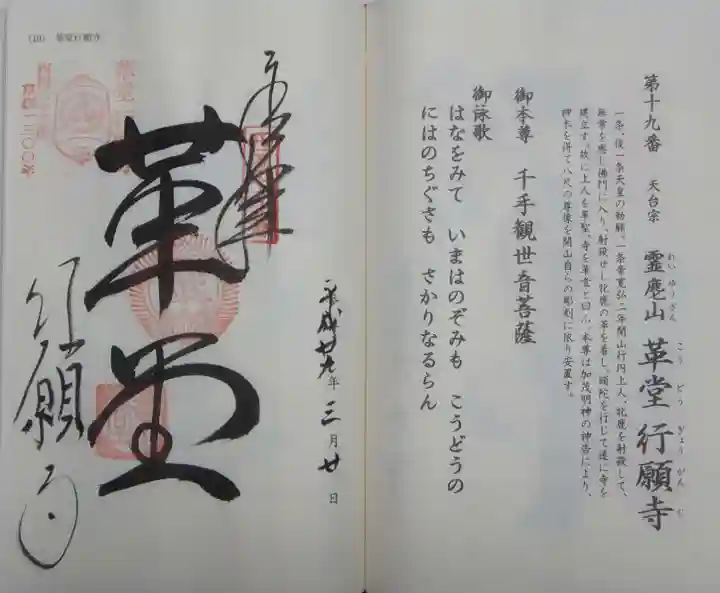 第十九番 天台宗 霊麀山 革堂 行願寺
れいゆうざん こうどう ぎょうがんじ
一条、後一条天皇の勅願。一条帝寛弘二年開山行円上人、牝鹿を射殺して、
無常を感じ佛門に入り、射殺せし牝鹿の革を着し、頭陀を行じて遂に寺を
建立す。故に上人を革聖、寺を革堂と曰ふ。本尊は加茂明神の神告により、
神木を得て八尺の尊像を開山自らの彫刻に限り安置す。
御本尊 千手観世音菩薩
御詠歌
はなをみて いまはのぞみも こうどうの
にはのちぐさも さかりなるらん
(19) 革堂行願寺
奉拝
革堂
行願寺
平成廿九年三月廿日